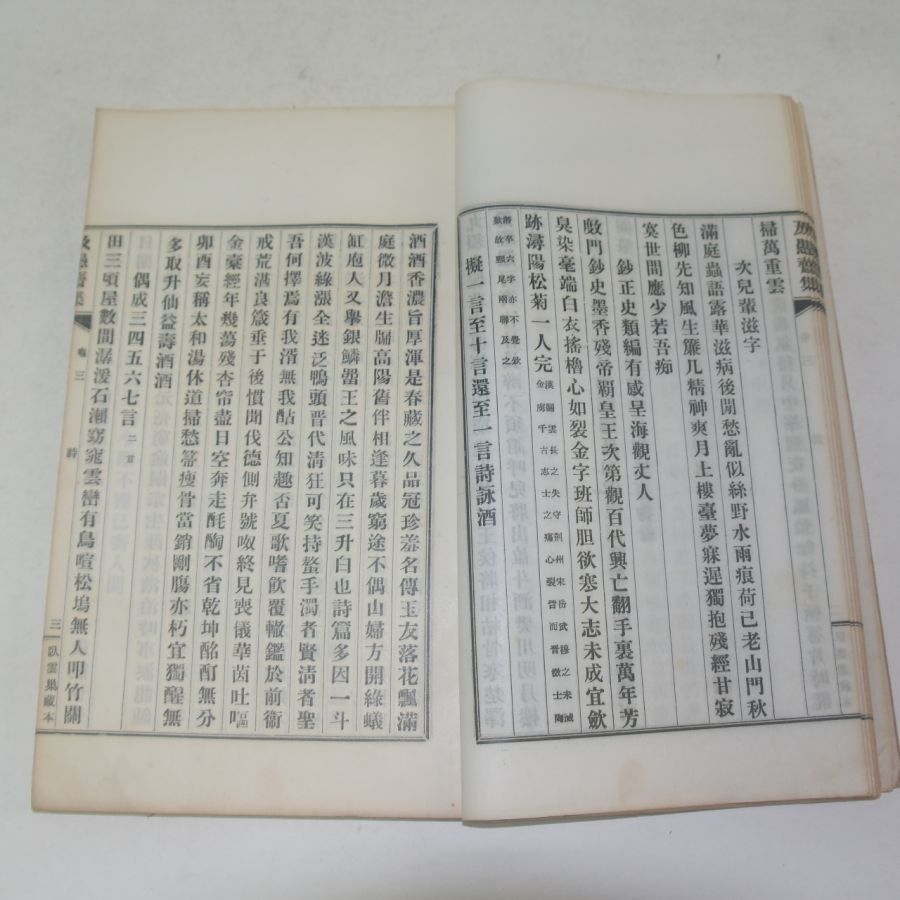 掃萬重雲
次兒輩滋字
滿庭蟲語露華滋病後閒愁亂似絲野水雨痕荷已老山門秋
色柳先知風生簾几精神爽月上樓臺夢寐遲獨抱殘經甘寂
寞世間應少若吾痴
鈔正史類編有感呈海觀丈人
敲門鈔史墨香殘帝覇皇王次第觀百代興亡翻手裏萬年芳
臭染毫端白衣搖櫓心如裂金字班師胆欲寒大志未成宜斂
跡潯陽松菊一人完
漢關雲長之失守荊州宋岳武穆之未滅
金虜千古志士之痛心裂眥而晋徵士陶
擬一言至十言還至一言詩詠酒
酒酒香濃旨厚渾是春藏之久品冠珍羞名傳玉友落花飄滿
庭微月澹生牖高陽舊伴相逢暮歲窮途不偶山婦方開綠蟻
缸庖人又擧銀鱗罶王之風味只在三升白也詩篇多因一斗
漢波綠漲全迷泛鴨頭晋代清狂可笑持螯手濁者賢清者聖
吾何擇焉有我湑無我酤公知趣否夏歌嗜飮覆轍鑑於前衛
戒荒湛良箴垂于後慣聞伐德側弁號呶終見喪儀華茵吐嘔
金橐經年幾蕩殘杏帘盡日空奔走酕醄不省乾坤酩酊無分
卯酉妄稱太和湯休道掃愁箒瘦骨當銷剛膓亦朽宜獨醒無
多取升仙益壽酒酒
偶成三四五六七言二首
田三頃屋數間潺湲石瀨窈窕雲巒有鳥喧松塢無人叩竹關
卷三
詩
三
臥雲巢藏本